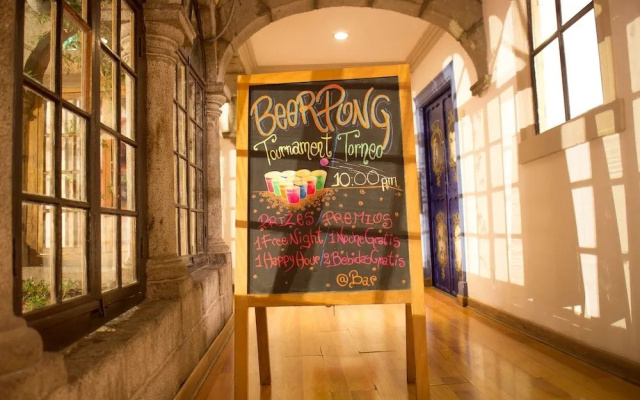 BEERPONG
Tournament/Torneo
10:00 pm
PRIZES/PREMIOS
1 Free Night, 1 Noche Gratis
1 Happy Hour/2 Bebidas Gratis
@Bar